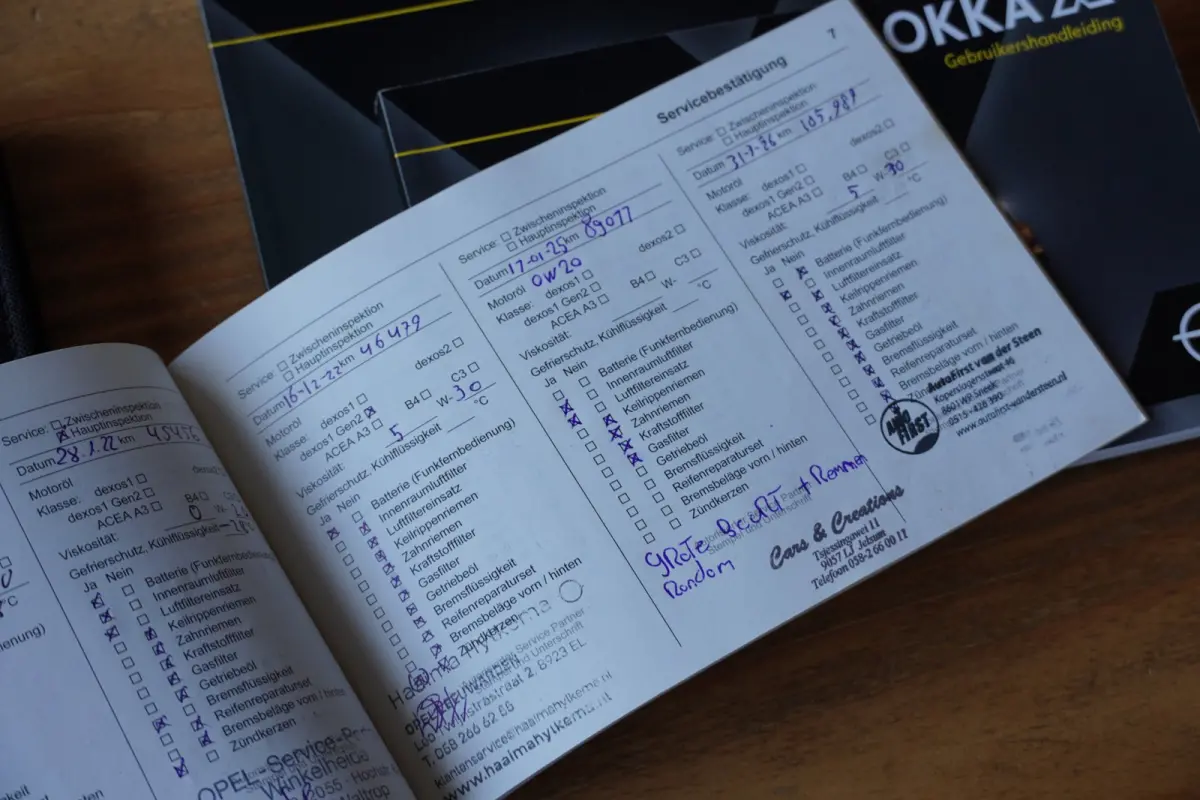 OKKA
Gebruikershandleiding
7
Servicebestätigung
Service: Zwischeninspektion
Hauptinspektion
Datum 28.1.22 km 45456
Motoröl
Klasse: dexos1
dexos1 Gen2
ACEA A3 B4
Viskosität: 0 W-
Gefrierschutz, Kühlflüssigkeit
Ja Nein
Batterie (Funkfernbedienung)
Innenraumluftfilter
Luftfiltereinsatz
Keilrippenriemen
Zahnriemen
Kraftstofffilter
Gasfilter
Getriebeöl
Bremsflüssigkeit
Reifenreparaturset
Bremsbeläge vorn / hinten
Zündkerzen
OPEL-Service-
Winkelheid
Waltrop
Service: Zwischeninspektion
Hauptinspektion
Datum 16-12-22 km 46479
Motoröl
Klasse: dexos1 dexos2
dexos1 Gen2
ACEA A3 B4 C3
Viskosität: 5 W-30
Gefrierschutz, Kühlflüssigkeit °C
Ja Nein
Batterie (Funkfernbedienung)
Innenraumluftfilter
Luftfiltereinsatz
Keilrippenriemen
Zahnriemen
Kraftstofffilter
Gasfilter
Getriebeöl
Bremsflüssigkeit
Reifenreparaturset
Bremsbeläge vorn / hinten
Zündkerzen
Service Partner
Stempel und Unterschrift
T. 058 266 62 66
klantenservice@haaimahylkema.nl
www.haaimahylkema.nl
Service: Zwischeninspektion
Hauptinspektion
Datum 17-01-25 km 89077
Motoröl 0W20
Klasse: dexos1 dexos2
dexos1 Gen2
ACEA A3 B4 C3
Viskosität: W-
Gefrierschutz, Kühlflüssigkeit °C
Ja Nein
Batterie (Funkfernbedienung)
Innenraumluftfilter
Luftfiltereinsatz
Keilrippenriemen
Zahnriemen
Kraftstofffilter
Gasfilter
Getriebeöl
Bremsflüssigkeit
Reifenreparaturset
Bremsbeläge vorn / hinten
Zündkerzen
grote Beurt + Remmen
Rondom
Cars & Creations
9057 LJ Jelsum
Telefoon 058-266 00 11
Service: Zwischeninspektion
Hauptinspektion
Datum 31-7-26 km 105,981
Motoröl
Klasse: dexos1 dexos2
dexos1 Gen2
ACEA A3 B4 C3
Viskosität: 5 W-30
Gefrierschutz, Kühlflüssigkeit °C
Ja Nein
Batterie (Funkfernbedienung)
Innenraumluftfilter
Luftfiltereinsatz
Keilrippenriemen
Zahnriemen
Kraftstofffilter
Gasfilter
Getriebeöl
Bremsflüssigkeit
Reifenreparaturset
Bremsbeläge vorn / hinten
AutoFirst van der Steen
0515-428 390
www.autofirst-vandersteen.nl
FIRST